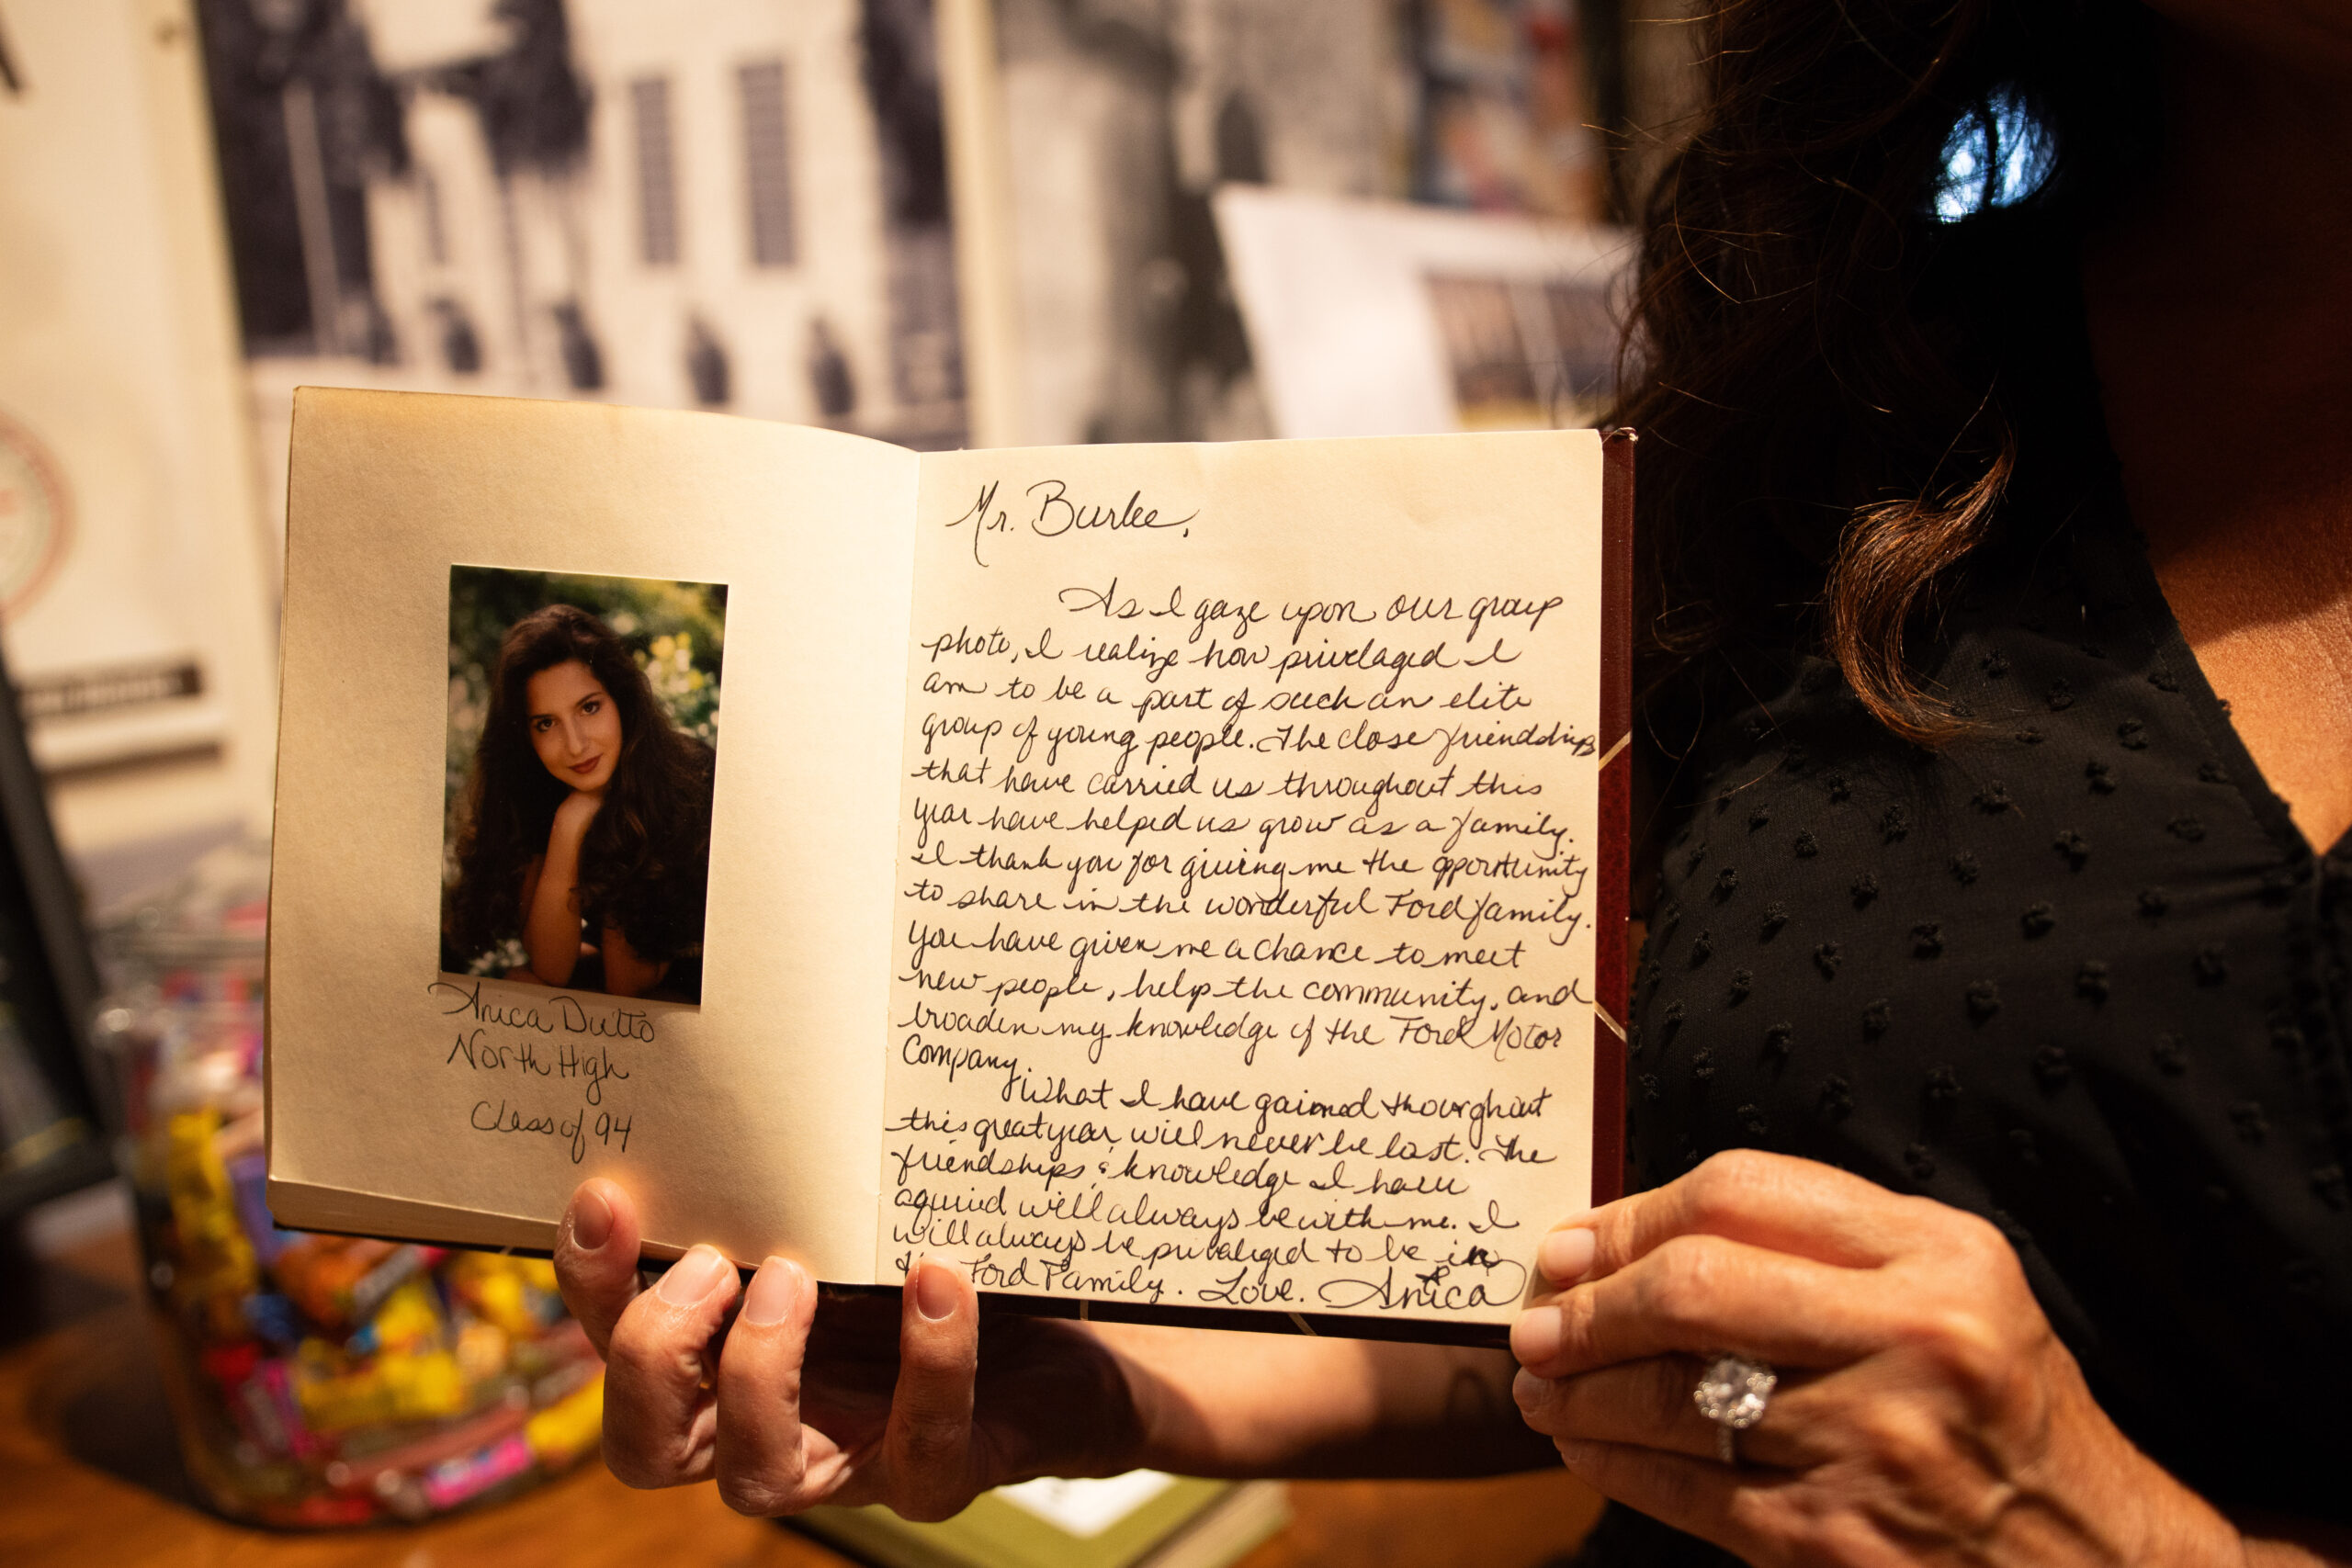 Anica Dutto
North High
Class of 94
Mr. Burke,
As I gaze upon our group
photo, I realize how privelaged I
am to be a part of such an elite
group of young people. The close friendships
that have carried us throughout this
year have helped us grow as a family.
I thank you for giving me the opportunity
to share in the wonderful Ford family.
You have given me a chance to meet
new people, help the community, and
broaden my knowledge of the Ford Motor
Company.
What I have gained throughout
this great year will never be lost. The
friendships & knowledge I have
aquired will always be with me. I
will always be privelaged to be in
Ford Family. Love, Anica